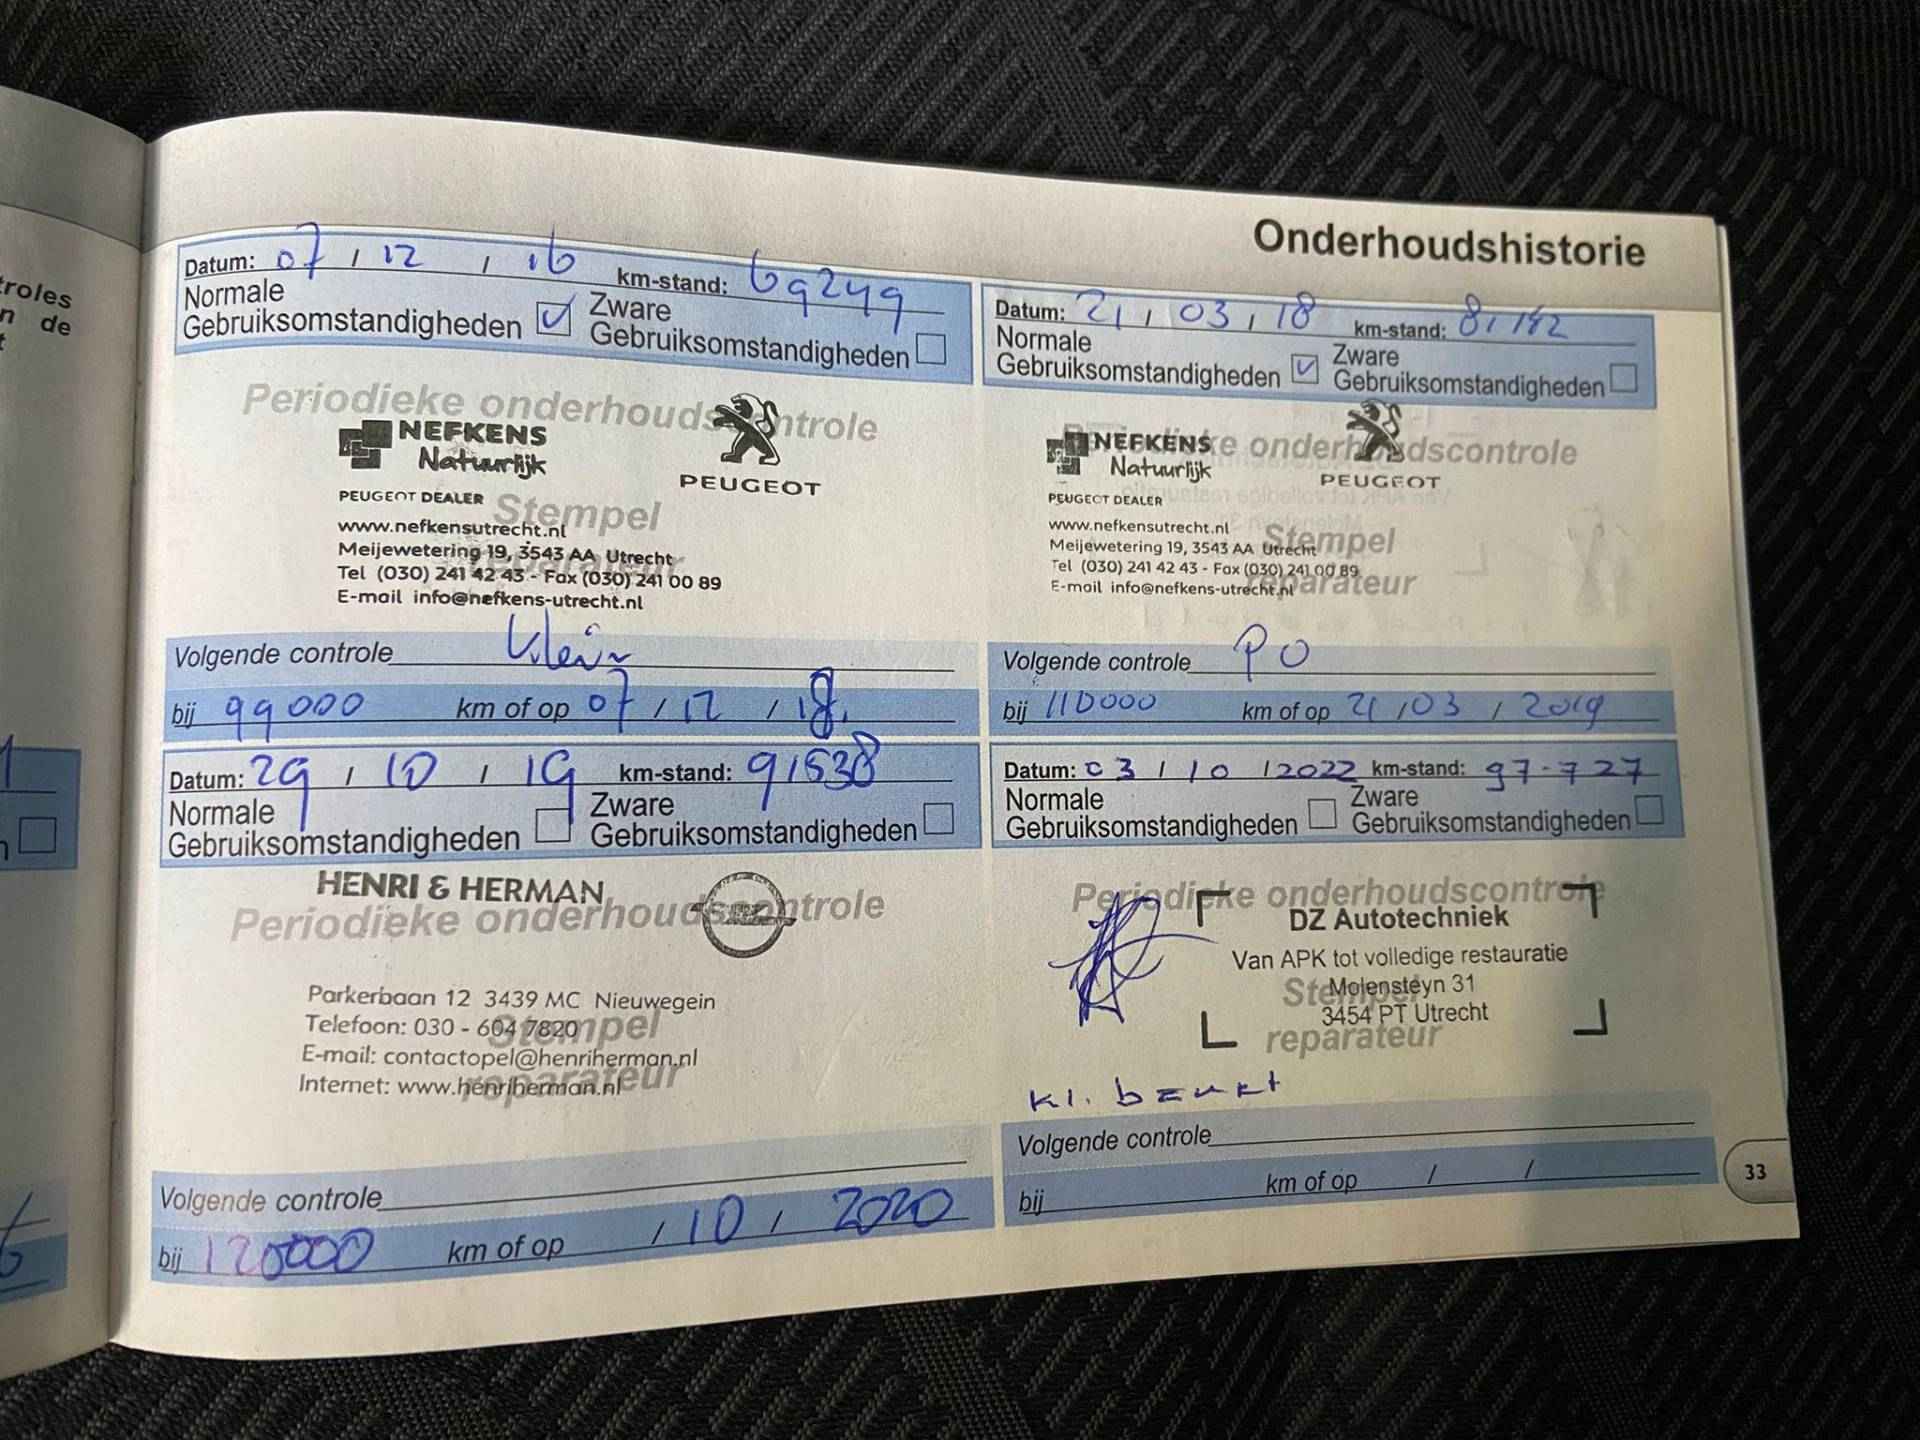 troles
n de
Onderhoudshistorie
Datum: 07 / 12 / 16 km-stand: 69249
Normale
Gebruiksomstandigheden
Zware
Gebruiksomstandigheden
Periodieke onderhoudscontrole
NEFKENS
Natuurlijk
PEUGEOT
PEUGEOT DEALER
Stempel
reparateur
www.nefkensutrecht.nl
Meijewetering 19, 3543 AA Utrecht
Tel (030) 241 42 43 - Fax (030) 241 00 89
E-mail info@nefkens-utrecht.nl
Volgende controle Klein
bij 99000 km of op 07 / 12 / 18
Datum: 21 / 03 / 18 km-stand: 81142
Normale
Gebruiksomstandigheden
Zware
Gebruiksomstandigheden
Periodieke onderhoudscontrole
NEFKENS
Natuurlijk
PEUGEOT
PEUGEOT DEALER
Stempel
reparateur
www.nefkensutrecht.nl
Meijewetering 19, 3543 AA Utrecht
Tel (030) 241 42 43 - Fax (030) 241 00 89
E-mail info@nefkens-utrecht.nl
Volgende controle PO
bij 110000 km of op 21 / 03 / 2019
Datum: 29 / 10 / 19 km-stand: 91538
Normale
Gebruiksomstandigheden
Zware
Gebruiksomstandigheden
HENRI & HERMAN
Periodieke onderhoudscontrole
Parkerbaan 12 3439 MC Nieuwegein
Telefoon: 030 - 604 7820
Stempel
E-mail: contactopel@henriherman.nl
Internet: www.henriherman.nl
reparateur
Volgende controle
bij 120000 km of op / 10 / 2020
Datum: 03 / 10 / 2022 km-stand: 97-727
Normale
Gebruiksomstandigheden
Zware
Gebruiksomstandigheden
Periodieke onderhoudscontrole
DZ Autotechniek
Van APK tot volledige restauratie
Stempel
Molensteyn 31
3454 PT Utrecht
reparateur
kl. beurt
Volgende controle
bij km of op / /
33